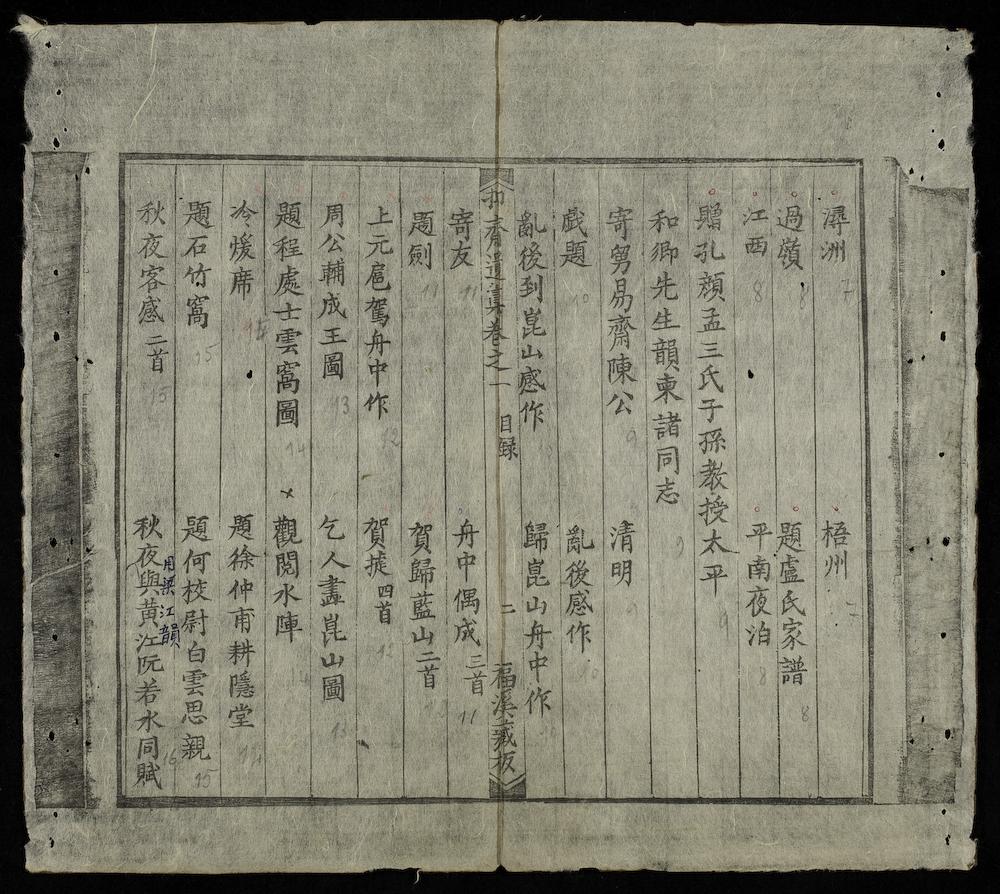 潯洲 7 梧州 7
過嶺 8 題盧氏家譜 8
江西 8 平南夜泊 8
贈孔顔孟三氏子孫教授太平 9
和鄉先生韻柬諸同志 9
寄舅易齋陳公 9 清明 9
戲題 10 亂後感作 10
亂後到崑山感作 10 歸崑山舟中作 10
抑齋遺集卷之一 目録 二 福溪藏板
寄友 11 舟中偶成 三首 11
題劍 11 賀歸藍山二首 12
上元扈駕舟中作 12 賀捷 四首 12
周公輔成王圖 13 乞人畫崑山圖 13
題程處士雲窩圖 14 觀閱水陣 14
冷煖席 15 題徐仲甫耕隱堂 14
題石竹窩 15 題何校尉白雲思親 15
用梁江韻
秋夜客感 二首 15 秋夜與黃江阮若水同賦 16